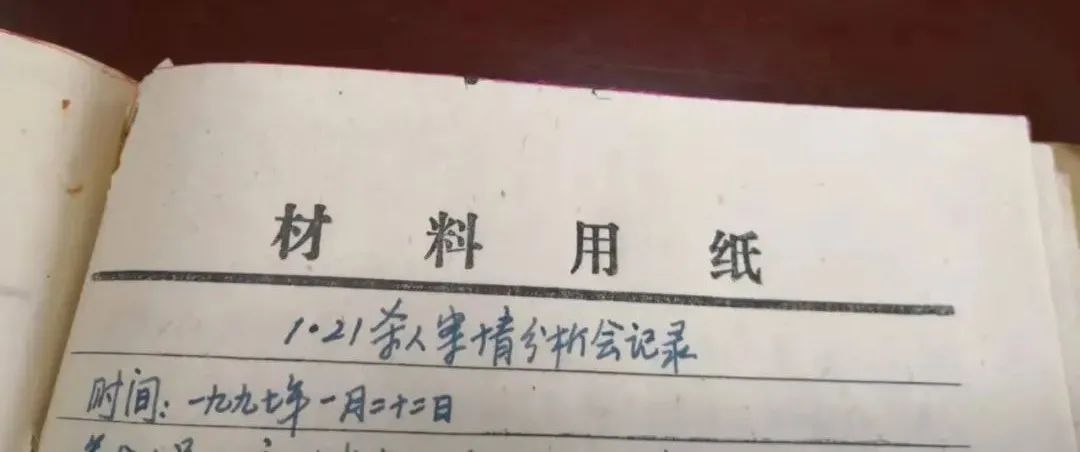 材料用纸
1·21杀人案情分析会记录
时间：一九九七年一月二十二日